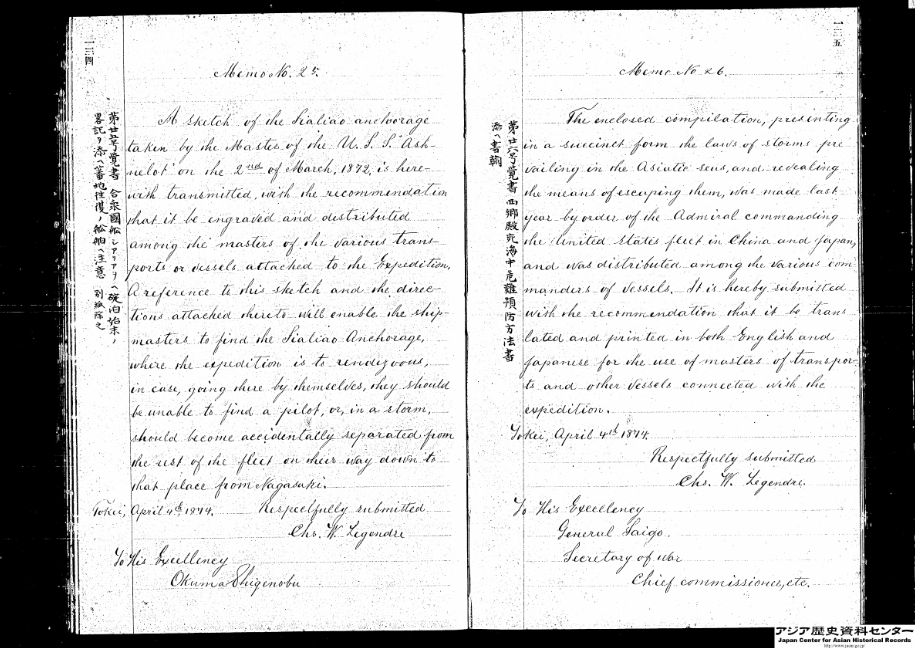 一三四
Memo No. 25.
A sketch of the Lialiao anchorage
taken by the Master of the U. S. S. "Ash-
uelot" on the 2nd of March, 1872, is here-
with transmitted, with the recommendation
that it be engraved and distributed
among the masters of the various trans-
ports or vessels attached to the Expedition.
A reference to this sketch and the direc-
tions attached thereto will enable the ship-
masters to find the Lialiao Anchorage,
where the expedition is to rendezvous,
in case, going there by themselves, they should
be unable to find a pilot, or, in a storm,
should become accidentally separated from
the rest of the fleet on their way down to
that place from Nagasaki.
Tokei, April 4th, 1874.
Respectfully submitted
Chs. W. Legendre
To His Excellency
Okuma Shigenobu
一三五
Memo No 26.
第廿六号覚書 西郷殿 海中危難預防方法書
添ヘ書翰
The enclosed compilation, presenting
in a succinct form the laws of storms pre
vailing in the Asiatic seas, and revealing
the means of escaping them, was made last
year by order of the Admiral commanding
the United States fleet in China and Japan,
and was distributed among the various com
manders of vessels. It is hereby submitted
with the recommendation that it to trans
lated and printed in both English and
Japanese for the use of masters of transpor
ts and other vessels connected with the
expedition.
Tokei, April 4th 1874.
Respectfully submitted
Chs. W. Legendre.
To His Excellency
General Saigo.
Secretary of War
Chief commissioner, etc.
アジア歴史資料センター
Japan Center for Asian Historical Records
http://www.jacar.go.jp/